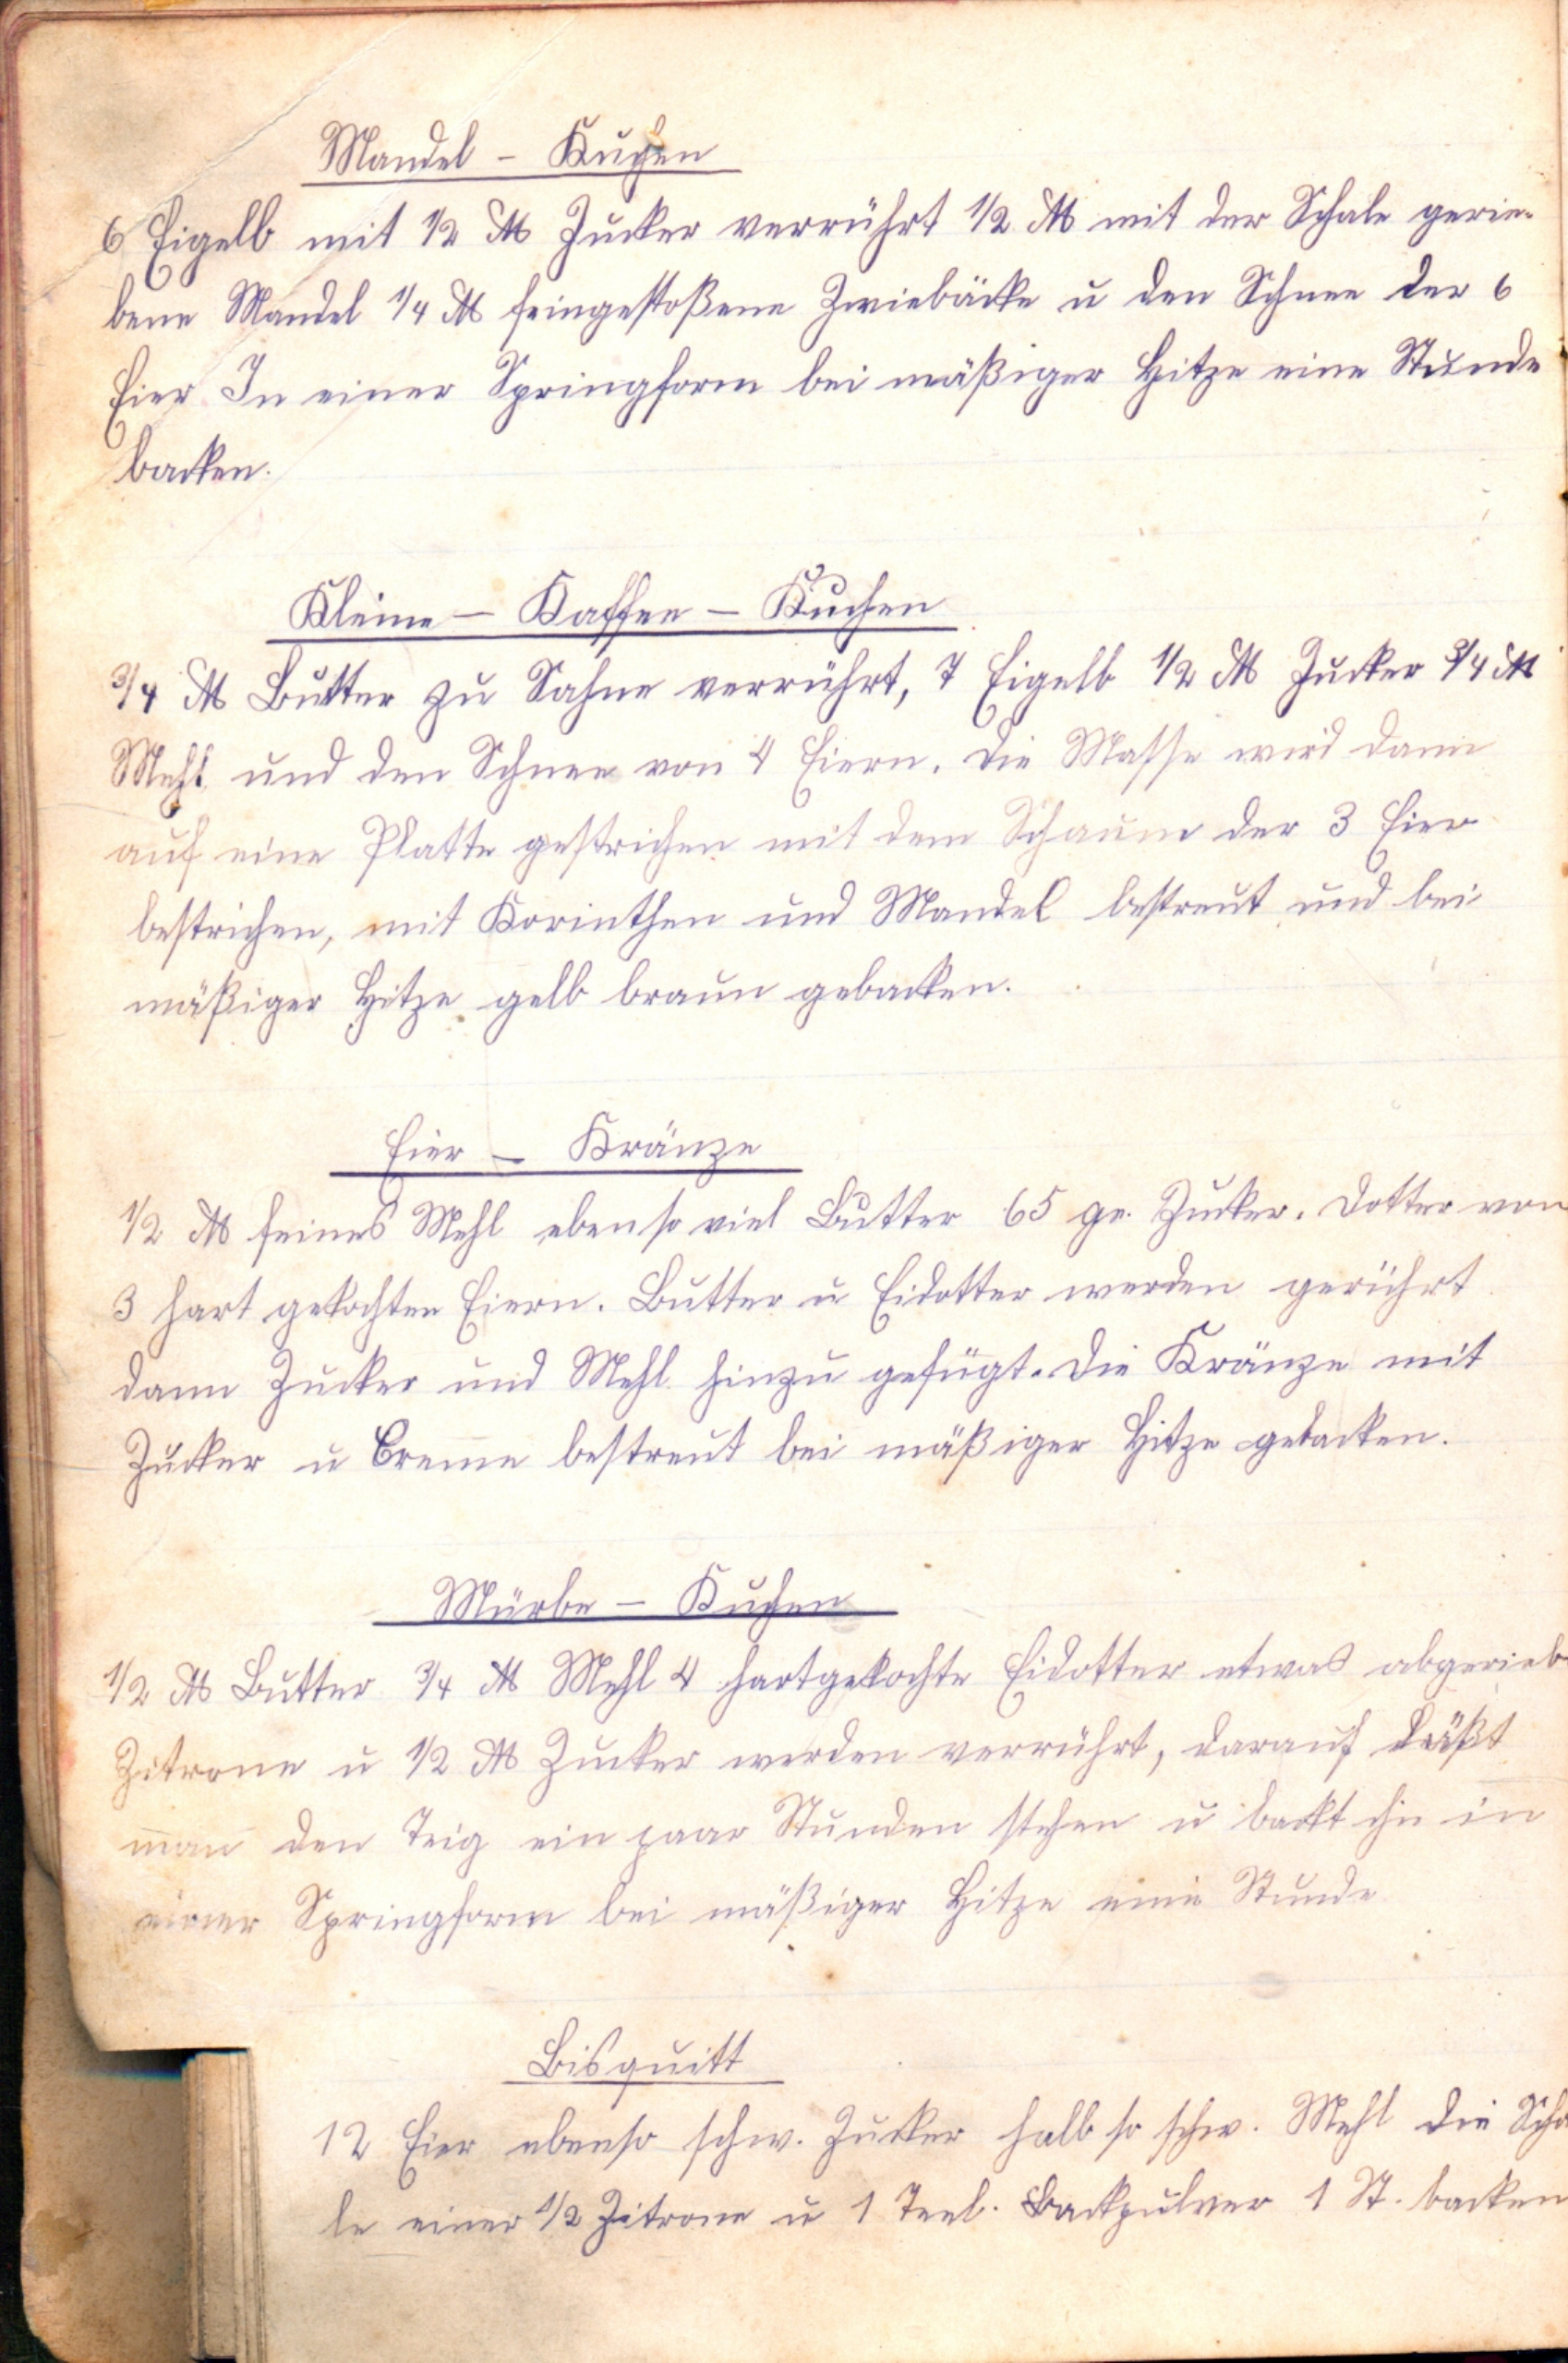 Mandel - Kuchen
6 Eigelb mit 1/2 ℔ Zucker verrührt 1/2 ℔ mit der Schale gerie-
bene Mandel 1/4 ℔ feingestoßene Zwiebäcke u den Schnee der 6
Eier In einer Springform bei mäßiger Hitze eine Stunde
backen.
Kleine - Kaffee - Kuchen
3/4 ℔ Butter zu Sahne verrührt, 7 Eigelb 1/2 ℔ Zucker 3/4 ℔
Mehl und den Schnee von 4 Eiern. Die Masse wird dann
auf eine Platte gestrichen mit dem Schaum der 3 Eier
bestrichen, mit Korinthen und Mandel bestreut und bei
mäßiger Hitze gelb braun gebacken.
Eier - Kränze
1/2 ℔ feines Mehl ebenso viel Butter 65 gr. Zucker. Dotter von
3 hart gekochten Eiern. Butter u Eidotter werden gerührt
dann Zucker und Mehl hinzu gefügt. Die Kränze mit
Zucker u Creme bestreut bei mäßiger Hitze gebacken.
Mürbe - Kuchen
1/2 ℔ Butter 3/4 ℔ Mehl 4 hartgekochte Eidotter etwas abgerieb
Zitrone u 1/2 ℔ Zucker werden verrührt, darauf läßt
man den Teig ein paar Stunden stehen u backt ihn in
einer Springform bei mäßiger Hitze eine Stunde
Bisquitt
12 Eier ebenso schw. Zucker halb so schw. Mehl die Scha
le einer 1/2 Zitrone u 1 Teel. Backpulver 1 St. backen